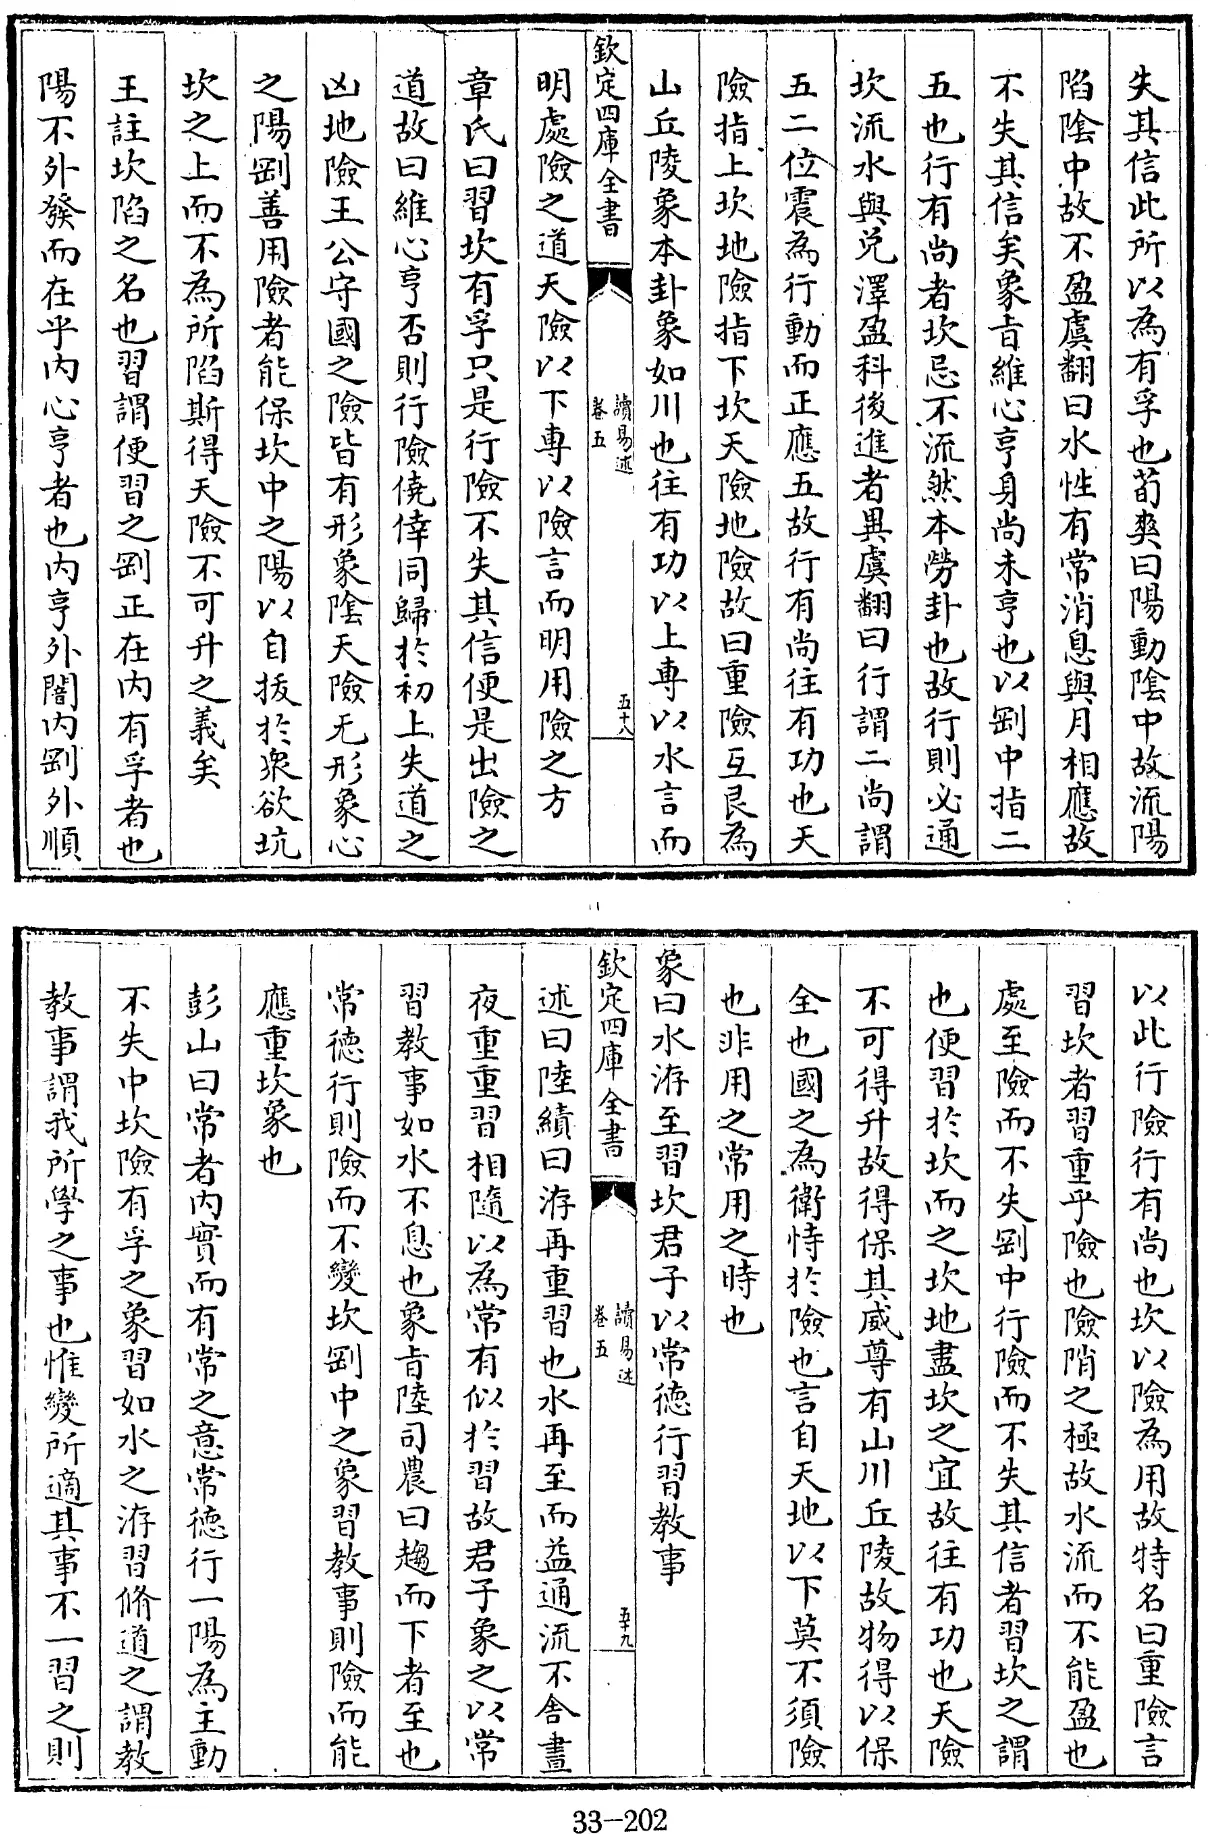 失其信此所以為有孚也荀爽曰陽動陰中故流陽
陷陰中故不盈虞翻曰水性有常消息與月相應故
不失其信矣象旨維心亨身尚未亨也以剛中指二
五也行有尚者坎忌不流然本勞卦也故行則必通
坎流水與兌澤盈科後進者異虞翻曰行謂二尚謂
五二位震為行動而正應五故行有尚往有功也天
險指上坎地險指下坎天險地險故曰重險互艮為
山丘陵象本卦象如川也往有功以上專以水言而
欽定四庫全書
讀易述
卷五
五十八
明處險之道天險以下專以險言而明用險之方
章氏曰習坎有孚只是行險不失其信便是出險之
道故曰維心亨否則行險僥倖同歸於初上失道之
凶地險王公守國之險皆有形象陰天險无形象心
之陽剛善用險者能保坎中之陽以自拔於衆欲坑
坎之上而不為所陷斯得天險不可升之義矣
王註坎陷之名也習謂便習之剛正在内有孚者也
陽不外發而在乎内心亨者也内亨外闇内剛外順
以此行險行有尚也坎以險為用故特名曰重險言
習坎者習重乎險也險陗之極故水流而不能盈也
處至險而不失剛中行險而不失其信者習坎之謂
也便習於坎而之坎地盡坎之宜故往有功也天險
不可得升故得保其威尊有山川丘陵故物得以保
全也國之為衛恃於險也言自天地以下莫不須險
也非用之常用之時也
象曰水洊至習坎君子以常德行習教事
欽定四庫全書
讀易述
卷五
五十九
述曰陸績曰洊再重習也水再至而益通流不舍晝
夜重重習相隨以為常有似於習故君子象之以常
習教事如水不息也象旨陸司農曰趨而下者至也
常德行則險而不變坎剛中之象習教事則險而能
應重坎象也
彭山曰常者内實而有常之意常德行一陽為主動
不失中坎險有孚之象習如水之洊習脩道之謂教
教事謂我所學之事也惟變所適其事不一習之則
33-202